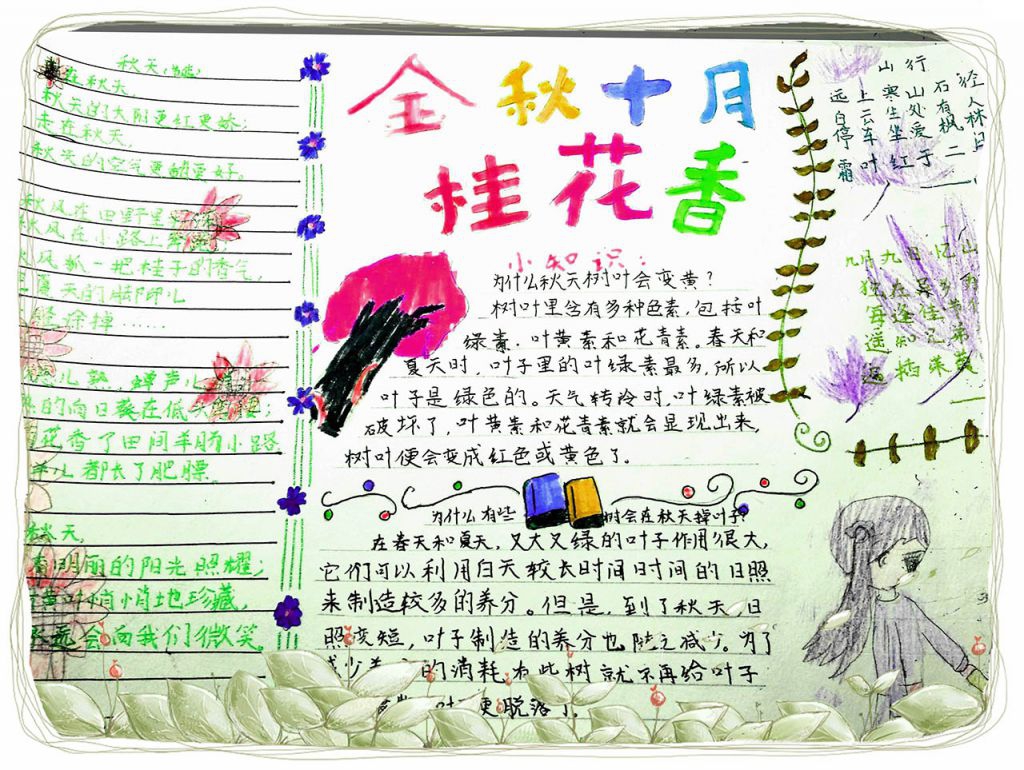 金秋十月
桂花香
秋天
在秋天,
秋天的太阳更红更娇;
走在秋天,
秋天的空气更甜更好。
秋风在田野里
秋风在小路上奔跑;
风抓一把桂子的香气,
夏天的
涂掉……
儿熟,蝉声儿
的向日葵在低头
花香了田间羊肠小路
羊儿都长了肥膘。
秋天,
明丽的阳光照耀;
黄叶悄悄地珍藏,
永远会向我们微笑
小知识:
为什么秋天树叶会变黄?
树叶里含有多种色素,包括叶
绿素、叶黄素和花青素。春天和
夏天时,叶子里的叶绿素最多,所以
叶子是绿色的。天气转冷时,叶绿素被
破坏了,叶黄素和花青素就会显现出来,
树叶便会变成红色或黄色了。
为什么有些 树会在秋天掉叶子?
在春天和夏天,又大又绿的叶子作用很大,
它们可以利用白天较长时间日时间的日照
来制造较多的养分。但是,到了秋天,日
照变短,叶子制造的养分也随之减少。为了
减少养分的消耗,有些树就不再给叶子
叶 便脱落了。
山行
远上寒山石径
白云生处有人
停车坐爱枫林
霜叶红于二月
九月九日忆山
独在异乡
每逢佳节
遥知兄弟
插茱萸